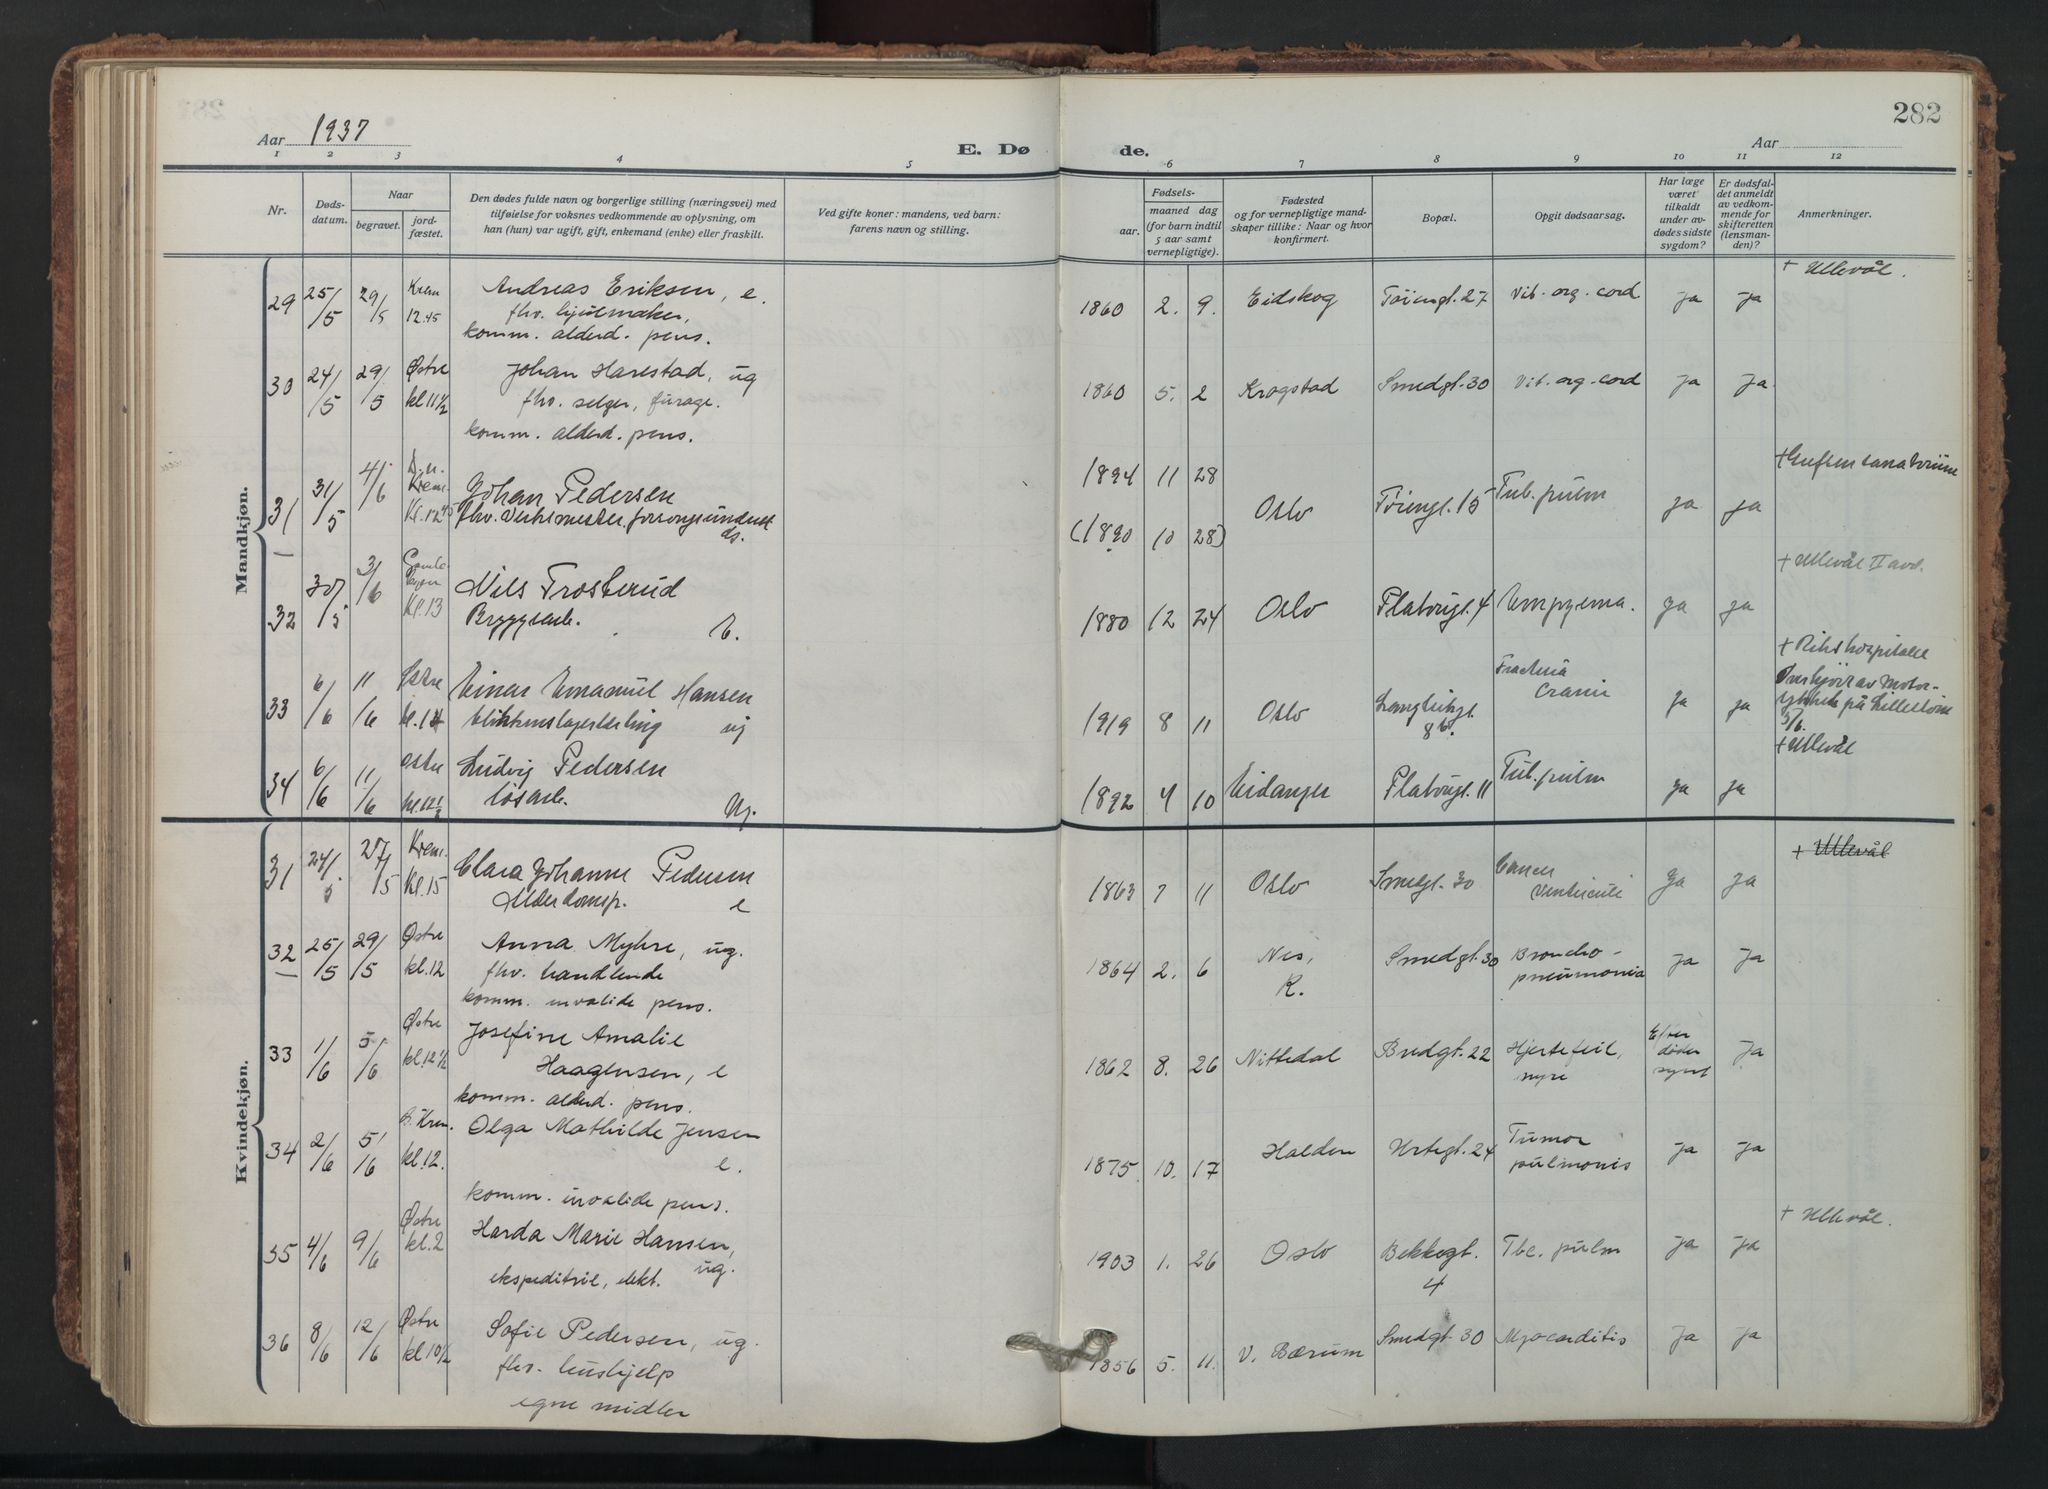 282
Aar 1937
E. Dø
de.
Aar
1 2 3 4 5 6 7 8 9 10 11 12
Nr.
Døds-
datum.
Naar
begravet.
jord-
fæstet.
Den dødes fulde navn og borgerlige stilling (næringsvei) med
tilføielse for voksnes vedkommende av oplysning, om
han (hun) var ugift, gift, enkemand (enke) eller fraskilt.
Ved gifte koner: mandens, ved barn:
farens navn og stilling.
Fødsels-
aar.
maaned dag
(for barn indtil
5 aar samt
vernepligtige).
Fødested
og for vernepligtige mand-
skaper tillike: Naar og hvor
konfirmert.
Bopæl.
Opgit dødsaarsag.
Har læge
været
tilkaldt
under av-
dødes sidste
sygdom?
Er dødsfal-
det anmeldt
av vedkom-
mende for
skifteretten
(lensman-
den)?
Anmerkninger.
Mandkjøn.
+ Ullevål.
29 25/5 29/5 Krem 12.45 Andreas Eriksen, e. 1860 2. 9. Eidskog Tøiengt. 27 Vit. org. cord. ja ja
fhv. hjulmaker,
komm. alderd. pens.
30 24/5 29/5 Østre kl 11½ Johan Harestad, ug 1860 5. 2 Kragstad Smedgt. 30 Vit. org. cord ja ja
fhv. selger, furage.
komm. alderd. pens.
31 31/5 4/6 Krem. Kl. 12 45 Johan Pedersen 1894 11 28 Oslo Tøiengt. 15 Tub. pulm ja ja
fhv. Verksmester
(1890 10 28)
+ Ullevål II avd.
32 30/5 3/6 Kl. 13 Nils Trosterud 1880 12 24 Oslo Platougt. 4 Empyema. ja ja
Bryggearb. E.
+ Rikshospitalet
33 6/6 11/6 Østre kl. 14 Einar Emanuel Hansen 1919 8 11 Oslo Langleikgt. 8 b. Fractura Cranii ja ja Overkjørt av Motor-
ug på Lillestrøm
5/6.
+ Ullevål
34 6/6 11/6 Østre kl. 12½ Ludvig Pedersen 1892 4 10 Eidanger Platougt. 11 Tub. pulm ja ja
løsarb. Ug.
Kvindekjøn.
+ Ullevål
31 24/5 27/5 Krem. Kl. 15 Clara Johanne Pedersen 1863 7 11 Oslo Smedgt. 30 Cancer ventriculi ja ja
Alderdomsp. e
32 25/5 29/5 Østre kl. 12 Anna Myhre, ug. 1864 2. 6 Nes, R. Smedgt. 30 Broncho-
pneumonia ja ja
fhv. handlende
komm. invalide pens.
33 1/6 5/6 Østre kl. 12½ Josefine Amalie 1862 8. 26 Nittedal Bredgt. 22 Hjertefeil, nyre Efter døden synt ja
Haagensen, e
komm. alderd. pens.
34 2/6 5/6 Krem. kl. 12. Olga Mathilde Jensen 1875. 10. 17 Halden Urtegt. 24 Tumor pulmonis ja ja
e.
komm. invalide pens.
+ Ullevål.
35 4/6 9/6 Østre kl. 2 Harda Marie Hansen, 1903 1. 26 Oslo Bekkegt. 4 Tbc. pulm ja ja
ekspeditrice, elekt. ug.
36 8/6 12/6 Østre kl 10½ Sofie Pedersen, ug. 1856 5. 11. V. Bærum Smedgt 30 Myocarditis ja ja
fhv. hushjelp
egne midler